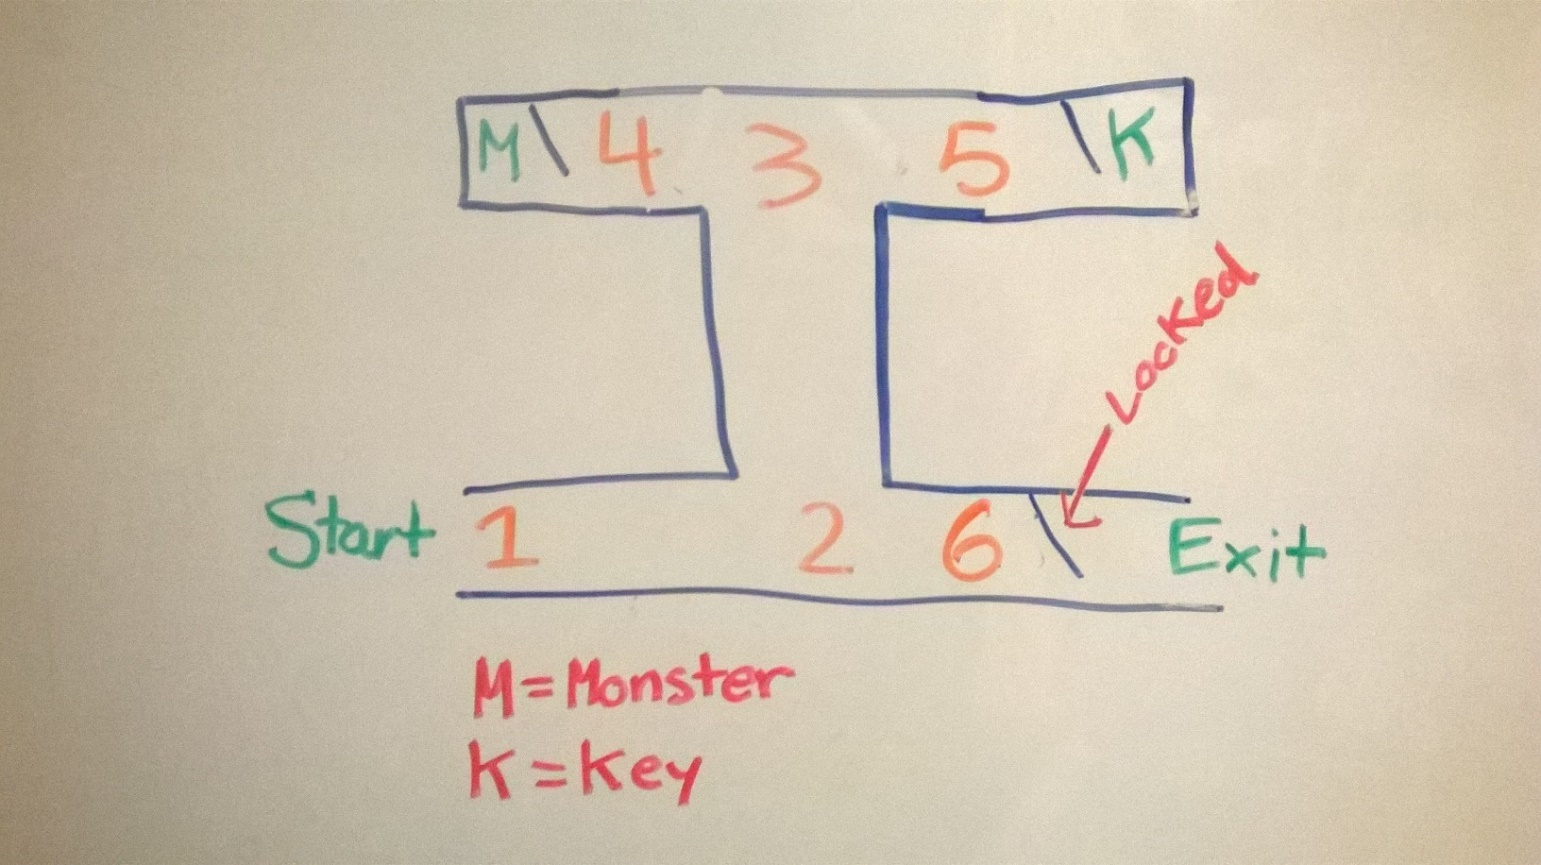 M 4 3 5 K
Locked
Start 1 2 6 Exit
M=Monster
K=Key